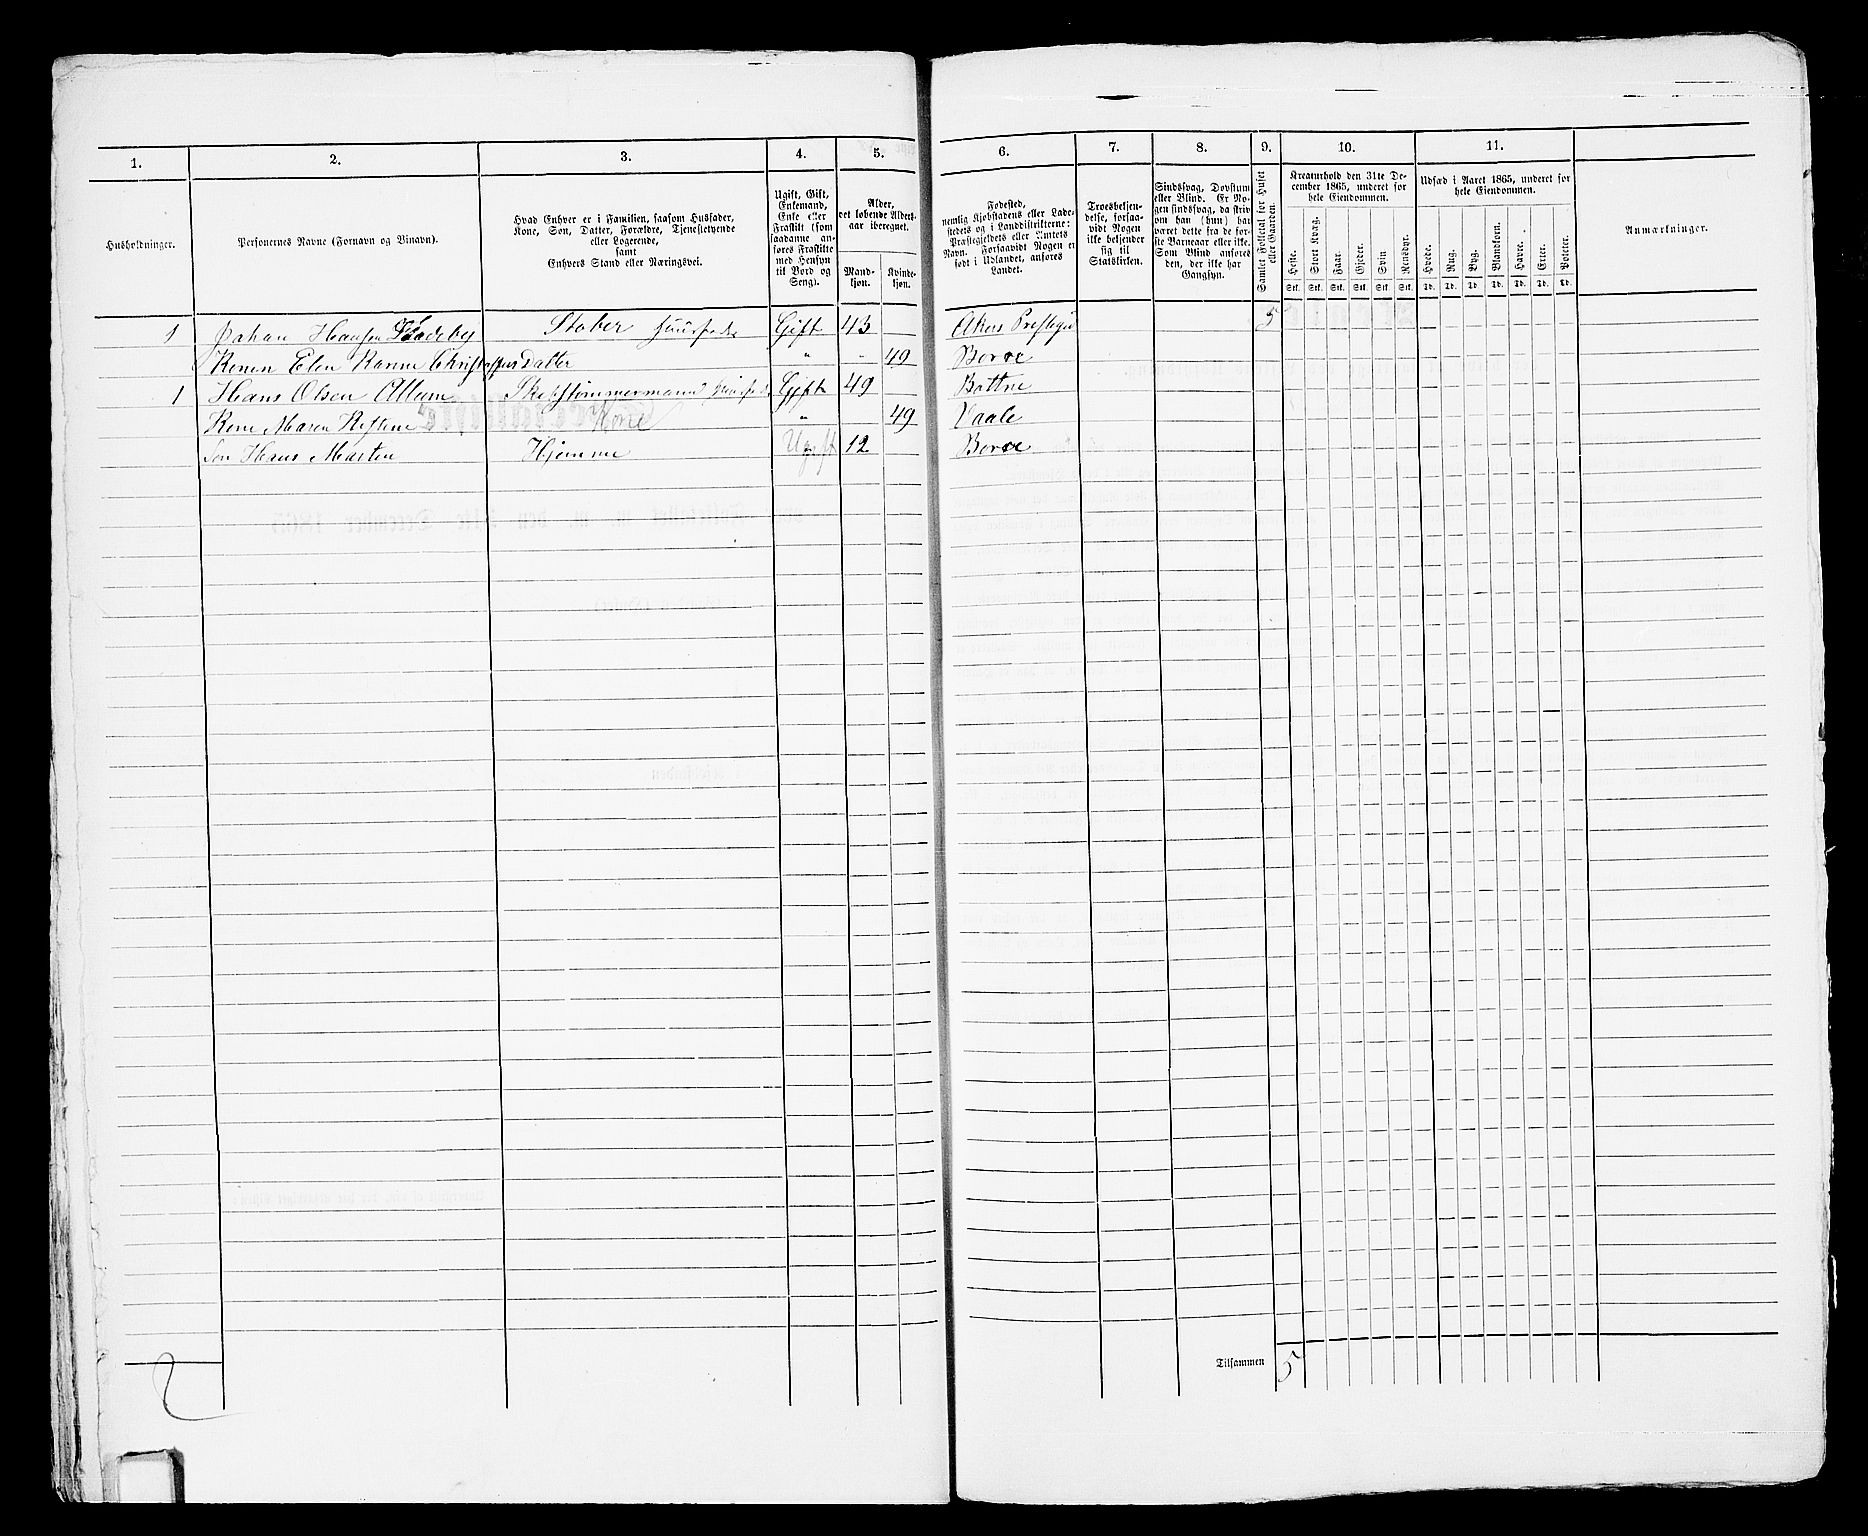 1. 2. 3. 4. 5. 6. 7. 8. 9. 10. 11.
Husholdninger.
Personernes Navne (Fornavn og Tilnavn).
Hvad Enhver er i Familien, saasom Husfader,
Kone, Søn, Datter, Forældre, Tjenestetyende
eller Logerende,
samt
Enhvers Stand eller Næringsvei.
Ugift, Gift,
Enkemand,
Enke eller
Fraskilt (som
saadanne an-
føres Fraskilte
med Hensyn
til Bord og
Seng).
Alder,
det løbende Alders-
aar iberegnet.
Mand-
kjøn.
Kvinde-
kjøn.
Fødested,
nemlig Kjøbstadens eller Lade-
stedets og i Landdistrikterne:
Præstegjeldets eller Amtets
Navn. Forsaavidt Nogen er
født i Udlandet, anføres
Landet.
Troesbekjen-
delse, forsaa-
vidt Nogen
ikke bekjender
sig til
Statskirken.
Sindssvag, Døvstum
eller Blind. Er No-
gen sindssvag, da skriv
om han (hun) har
været dette fra de før-
ste Barneaar eller ikke.
Som Blind anføres
den, der ikke har
Gangsyn.
Samlet Folketal for Huset
eller Gaarden.
Kreaturhold den 31te De-
cember 1865, underet for
hele Eiendommen.
Heste. Stort Kvæg. Faar. Gjeder. Svin Rensdyr.
Stk. Stk. Stk. Stk. Stk. Stk.
Udsæd i Aaret 1865, underet for
hele Eiendommen.
Hvede. Rug. Byg. Blandkorn. Havre. Erter. Poteter.
Td. Td. Td. Td. Td. Td. Td.
Anmærkninger.
1 Johan Hansen Stober Huusfader Gift 43 Akers 5
Konen Elen Christoffersdatter " 49 Borre
1 Hans Olsen Allum Gift 49 Bottne
Kone Maren Kone " 49 Vaale
Søn Hans Martin Hjemme Ugift 12 Borre
2
Tilsammen 5